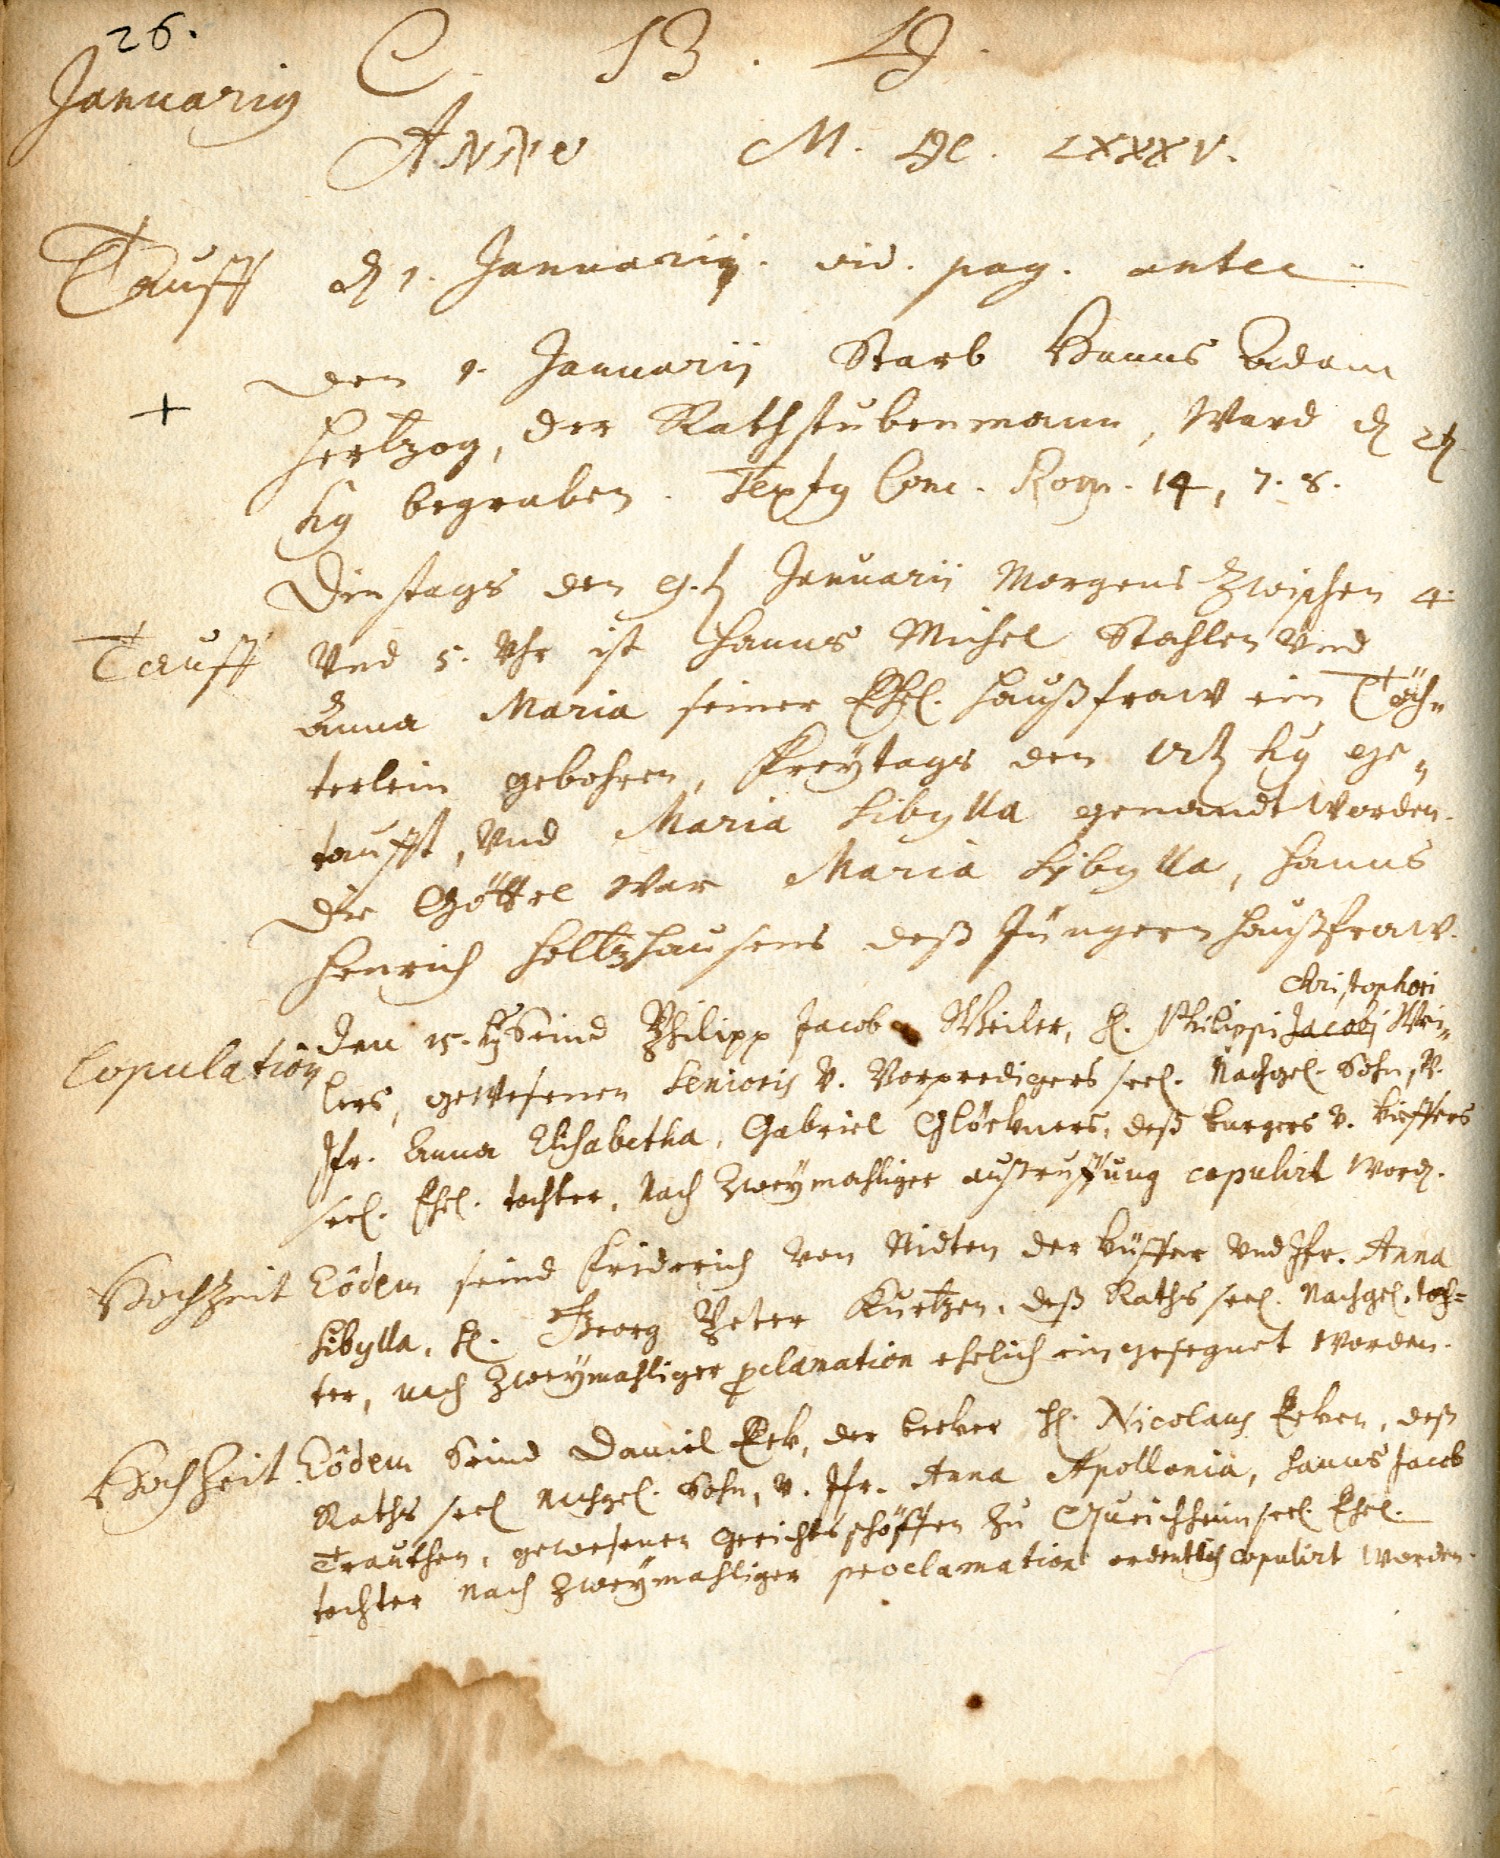 26.
Januarig C. B. D.
ANNO M. DC. LXXXV.
Tauff d 1. Januarij. vid. pag. antec
Den 1. Januarij Starb Hanns Adam
+
Hertzog, der Rathstubenmann, Ward d
hg begraben. Textg Conc. Rom. 14, 7. 8.
Dinstags den 9.t Januarii Morgens Zwischen 4.
Tauff Und 5. Uhr ist Hanns Michel Stahlen Und
Anna Maria seiner Ehel. Haußfraw ein Töch„
terlein gebohren, Freytags den hg ge„
taufft, Und Maria Sibylla genandt Worden.
Die Göttel War Maria Sÿbylla, Hanns
Henrich Holtzhausens deß Jüngern Haußfraw.
Christophori
Copulation Den 15. hg Seind Philipp Jacob Weiler, H. Philippi Jacobj Wei„
lers, gewesenen Senioris V. Vorpredigers seel. Nachgel. Sohn, V.
Jfr. Anna Elisabetha, Gabriel Glöckners, deß burgers V. Küffers
seel. Ehel. tochter, Nach Zweymahliger außruffung copulirt Word.
Hochzeit Eôdem seind Friderich Von Nidten der Küffer Und Jfr. Anna
Sibylla, H. Georg Peter Kurtzen, deß Raths seel. Nachgel. toch=
ter, nach Zweymahliger pclamation ehelich eingesegnet Worden.
Hochzeit Eôdem Seind Daniel Eck, der becker H. Nicolaus Ecken, deß
Raths seel Nachgel. Sohn, V. Jfr. Anna Apollonia, Hanns Jacob
Trauthen, gewesenen gerichtsschöffen Zu seel. Ehel.
tochter Nach Zweymahliger proclamation ordentlich copulirt Worden.